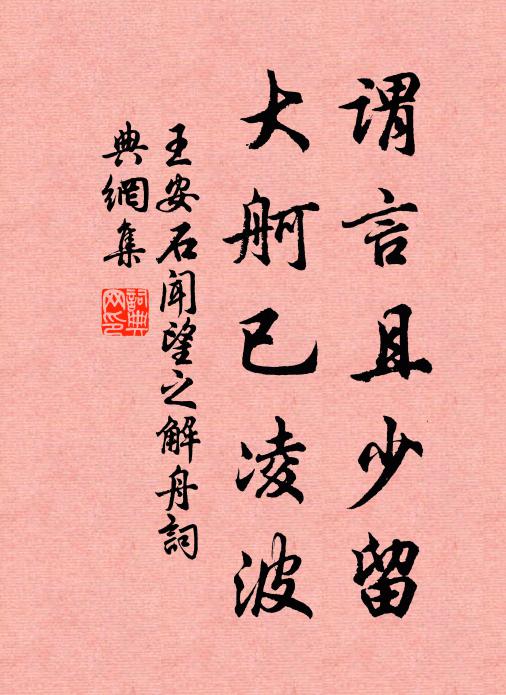 謂言且少留
大舸已凌波
王安石聞望之解舟詞
典網集
詞典网印